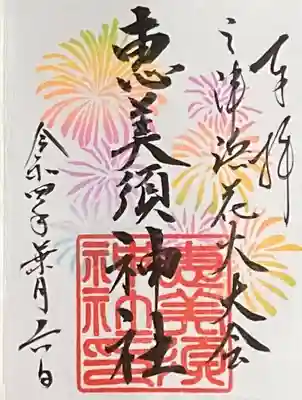 奉拝
三津浜花火大会
恵美須神社
恵美須
神社印
令和四年葉月六日